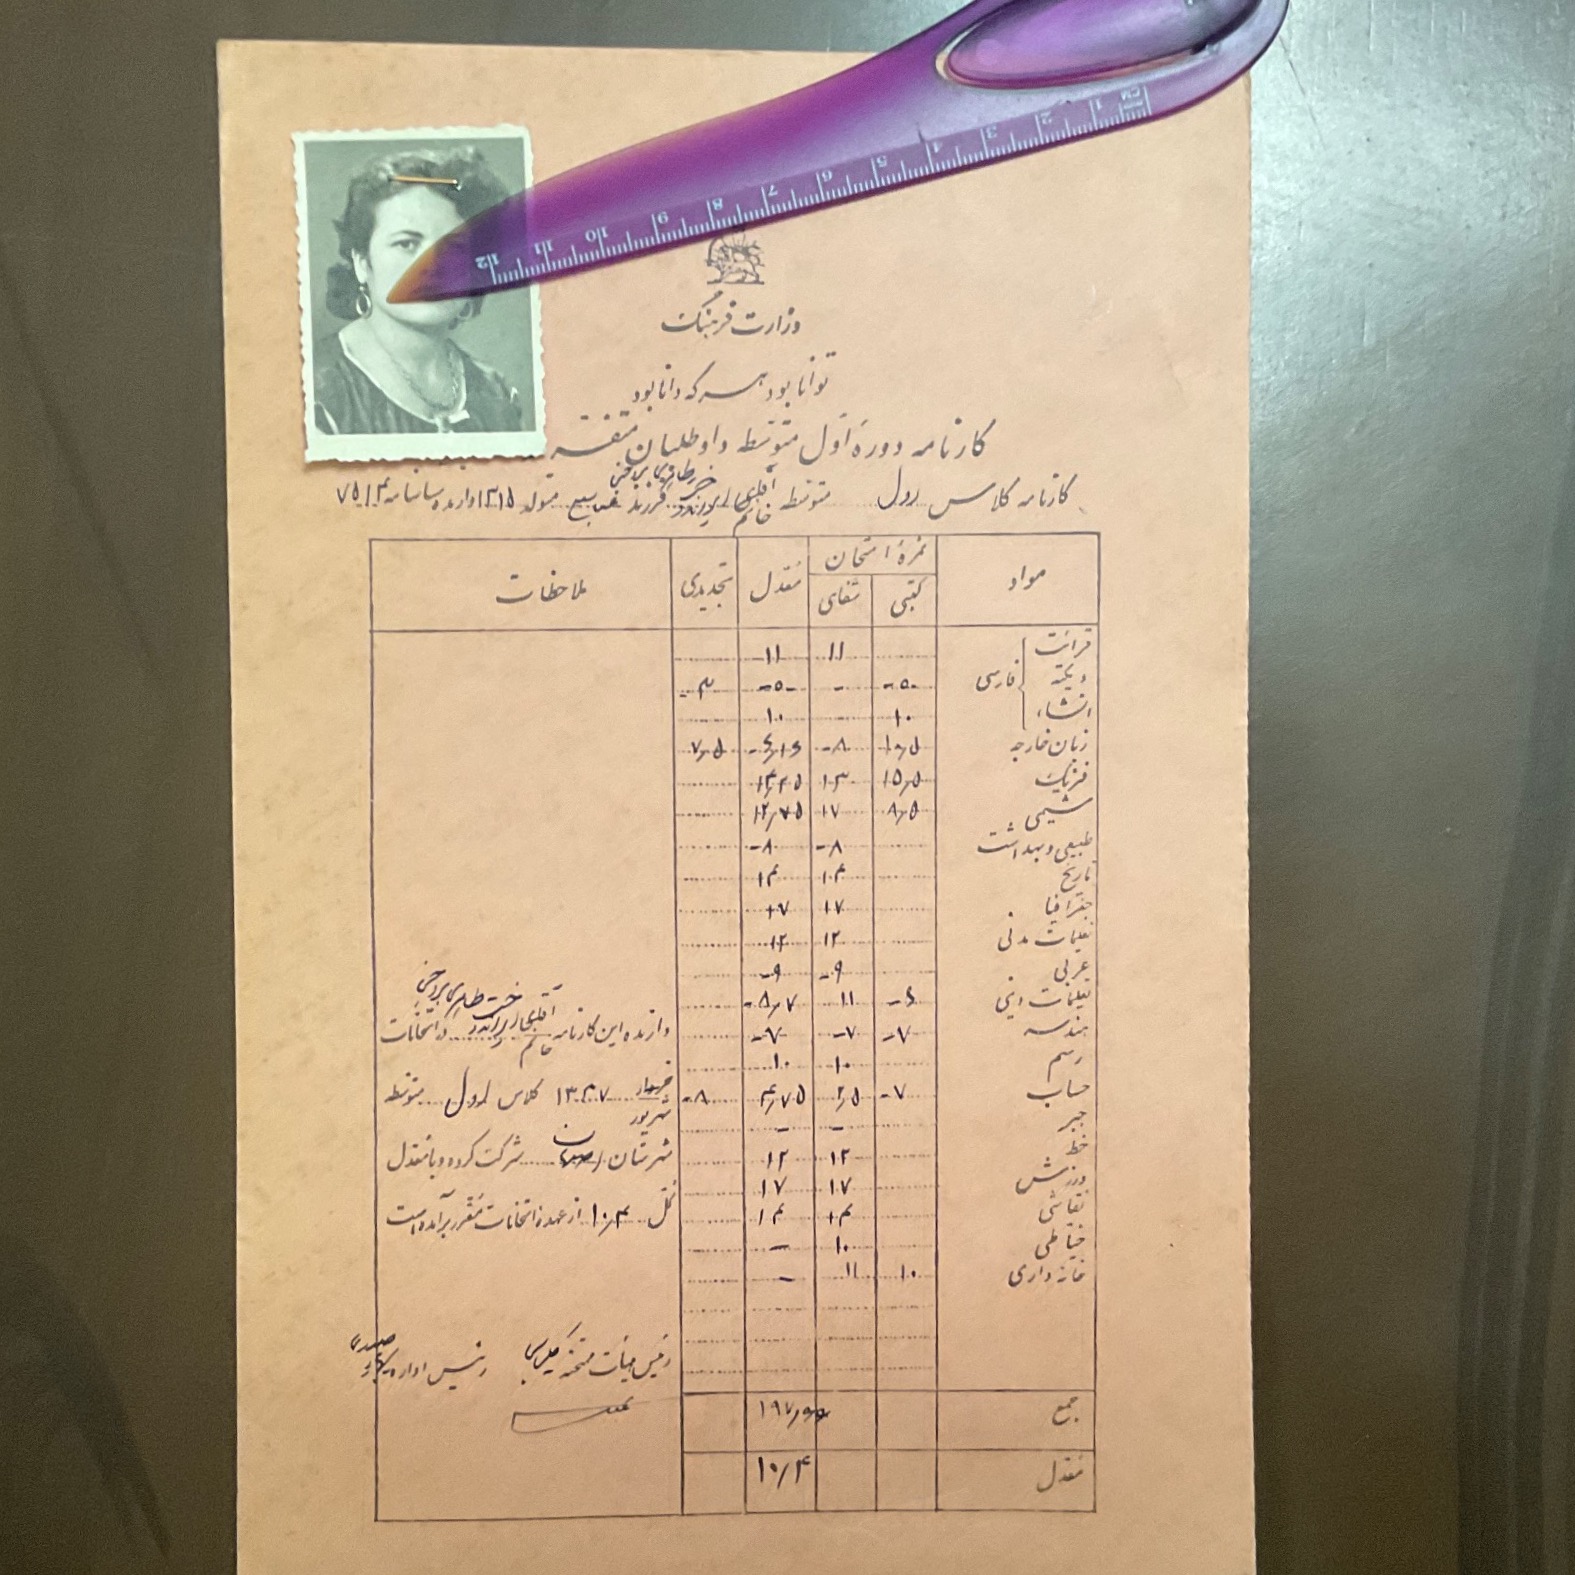 وزارت فرهنگ
توانا بود هر که دانا بود
کارنامه دورهٔ اوّل متوسطه داوطلبان متفرقه
کارنامه کلاس اول متوسطه آقای خانم فرزند متولد ۱۳۱۵ دارنده شناسنامه
مواد نمرهٔ امتحان معدّل تجدیدی ملاحظات
کتبی شفاهی
قرائت ۱۱ ۱۱
فارسی دیکته ۵- - ۵- ۳-
انشاء ۱۰ ۱۰
زبان خارجه ۱۰٫۵ ۸- ۷٫۵
فیزیک ۱۵٫۵ ۱۳
شیمی ۸٫۵ ۱۷ ۱۲٫۷۵
طبیعی و بهداشت ۸- ۸-
تاریخ ۱۴ ۱۴
جغرافیا ۱۷ ۱۷
تعلیمات مدنی ۱۲ ۱۲
عربی ۹- ۹-
تعلیمات دینی ۱۱ ۸٫۷
هندسه ۷- ۷- ۷-
رسم ۱۰ ۱۰
حساب ۷- ۲٫۵ ۴٫۷۵ ۸-
جبر - -
خط ۱۲ ۱۲
ورزش ۱۷ ۱۷
نقاشی ۱۴ ۱۴
خیاطی ۱۰ -
خانه داری ۱۰ ۱۱ -
دارنده این کارنامه آقای خانم در امتحانات
خرداد شهریور ۱۳۳۷ کلاس اول متوسطه
شهرستان شرکت کرده و با معدّل
کلّ ۱۰٫۴ از عهدهٔ امتحانات مقرر برآمده است
رئیس هیأت ممتحنه رئیس اداره
جمع
معدّل ۱۰/۴
12 11 10 9 8 7 6 5 4 3 2 1 CM